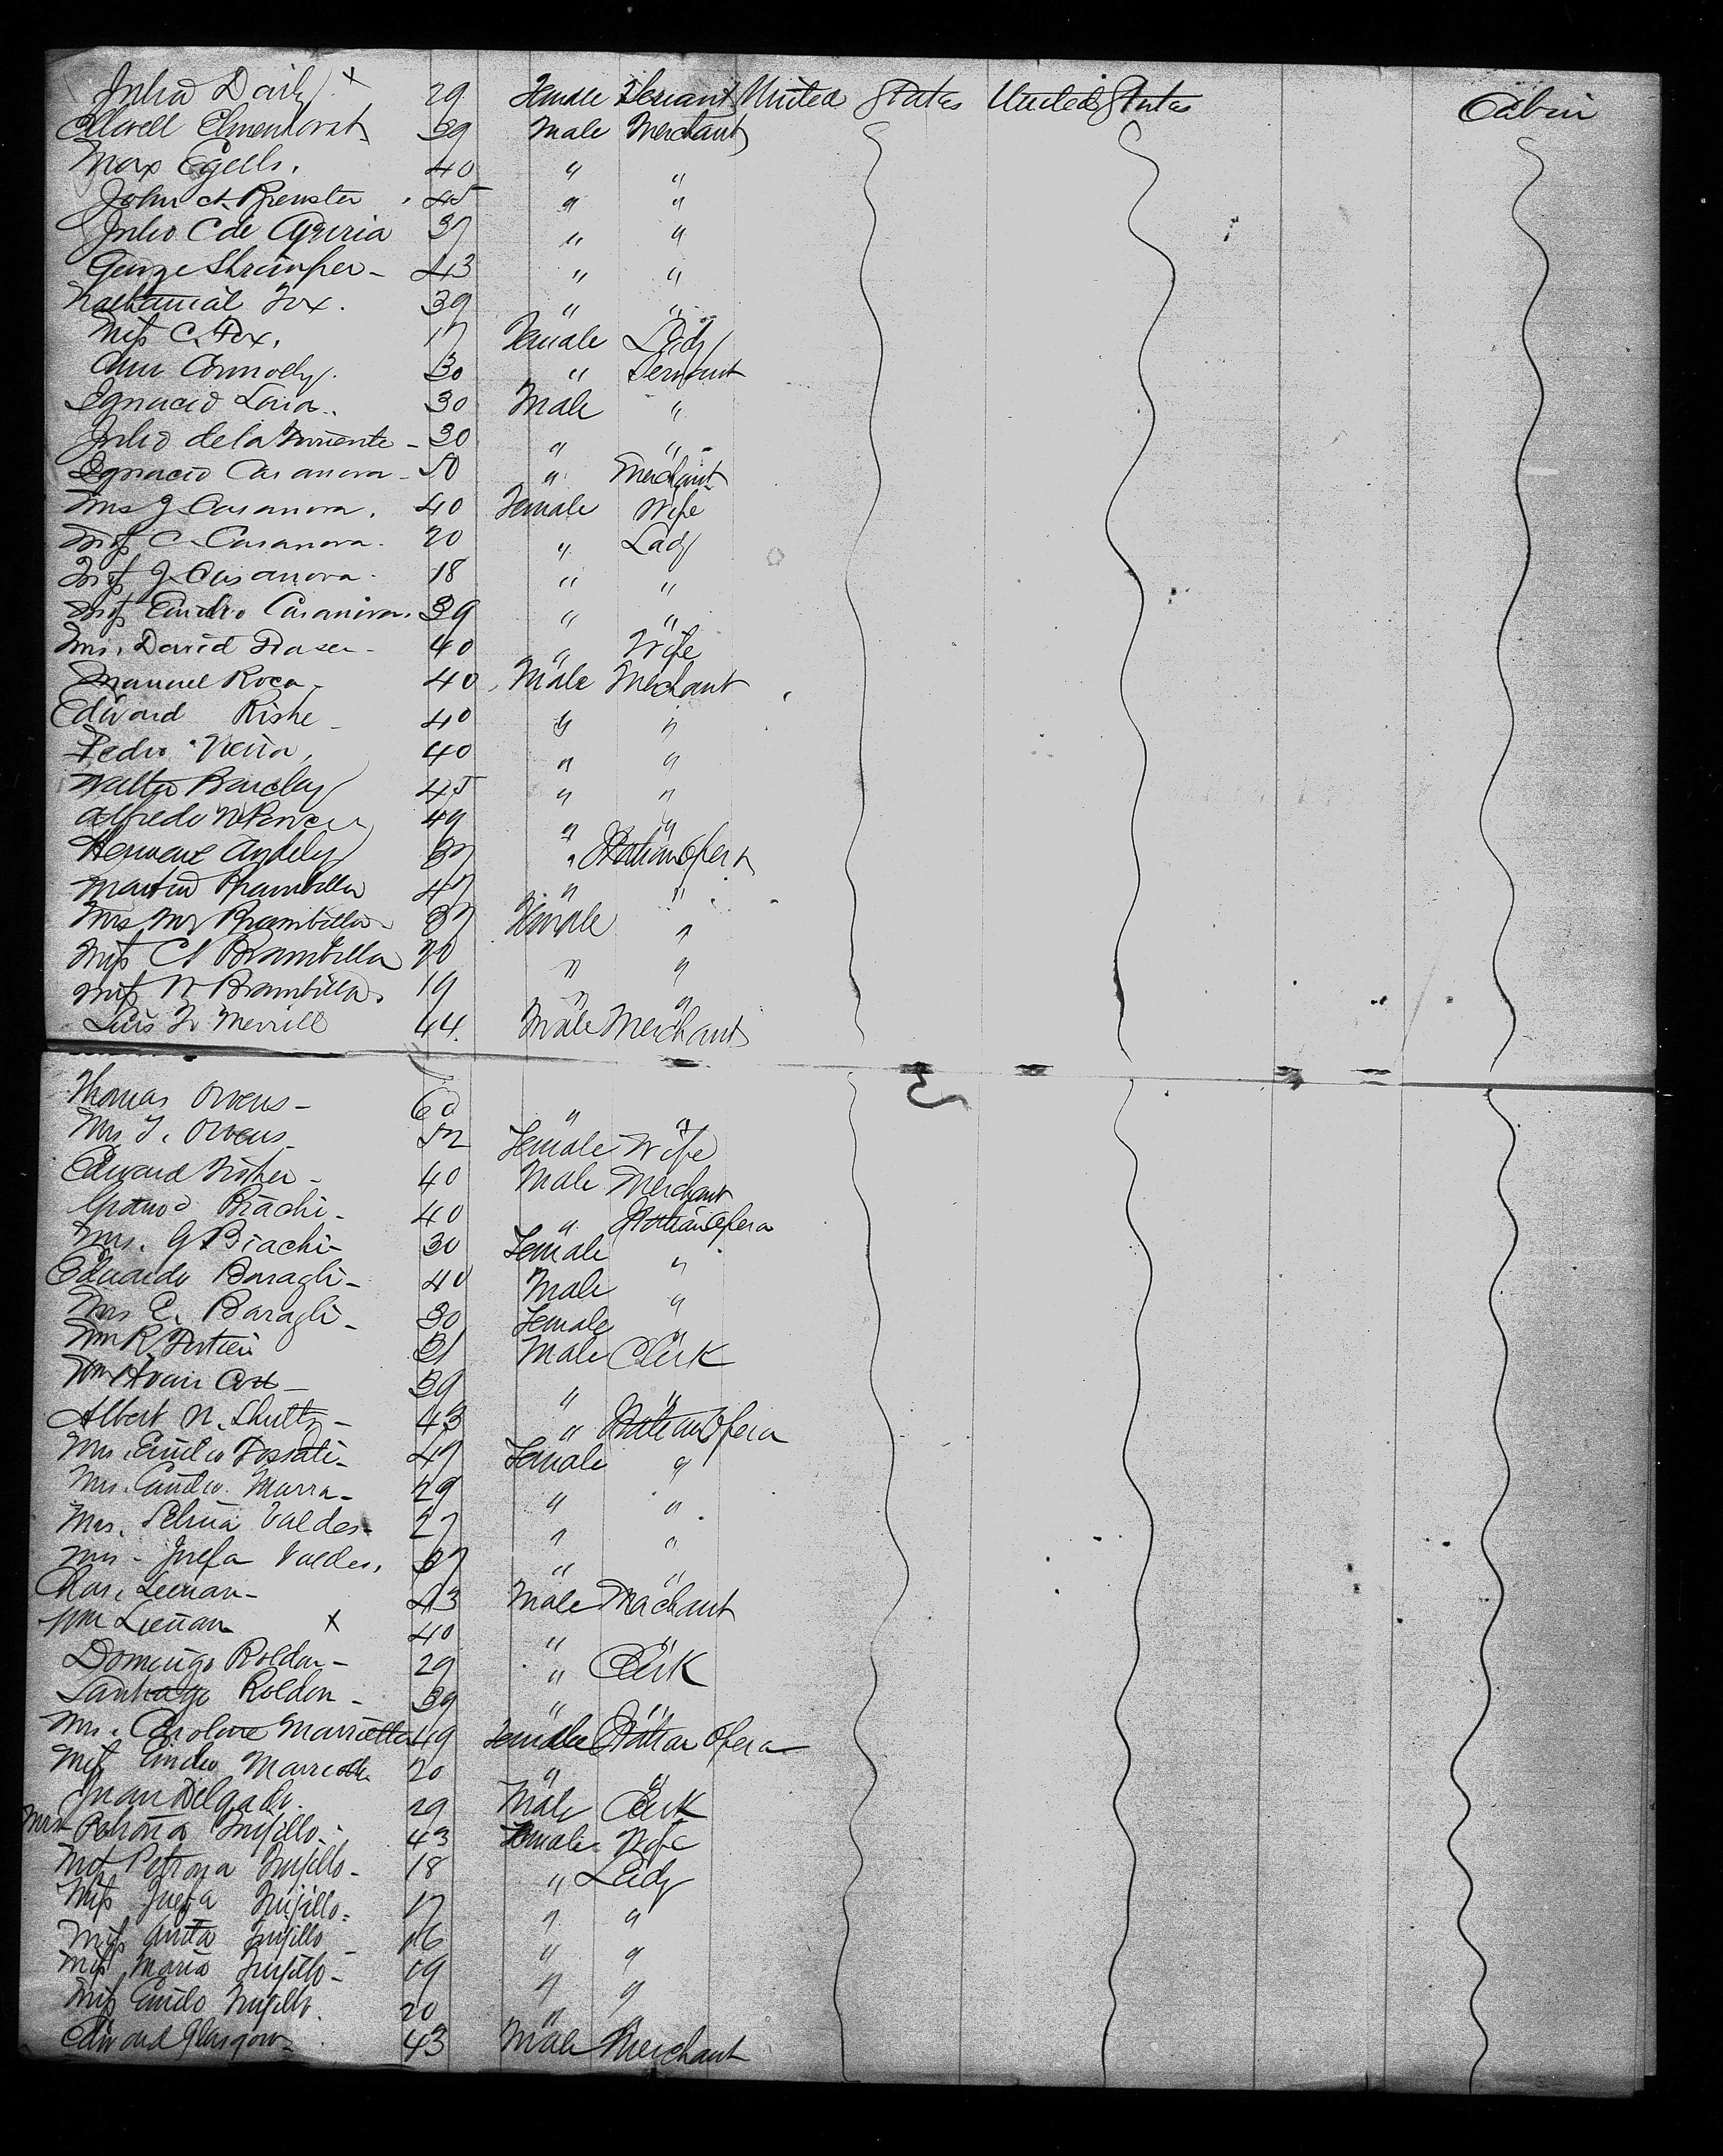 Julia Daily x 29 Female Servant United States United States Cabin
39 Male Merchant
Max Egells. 40 " "
John A Brewster 45 " "
Julio C de 37 " "
George Shrimper - 43 " "
Nathanial Fox. 39 " "
Miss C. Fox, 17 Female Lady
Ann Connolly. 30 " Servant
Ignacio Loria.. 30 Male "
Julio de la - 30 " "
Ignacio Casanova - 50 " Merchant
Mrs J Casanova. 40 Female Wife
Miss C Casanova. 20 " Lady
Miss J Casanova. 18 " "
Miss Casanova. 39 " "
Mrs. David 40 " Wife
Manuel Roca - 40 Male Merchant
Edward 40 " "
Pedro 40 " "
Walter Barclay 45 " "
Alfredo 49 " "
37 " Italian Opera
Brambilla 47 " "
Mrs M Brambilla 37 Female "
Miss C Brambilla 20 " "
Miss N Brambilla. 19 " "
Luis F Merrill 44. Male Merchant
Thomas Owens - 60 " "
Mrs T. Owens 52 Female Wife
Edward - 40 Male Merchant
Biachi - 40 " Italian Opera
Mrs. G Biachi - 30 Female "
Eduardo Baragli - 40 Male "
Mrs E. Baragli - 30 Female "
Wm R 31 Male Clerk
Wm - 39 " "
Albert N. Shultz - 43 " Italian Opera
Mrs. Emilio Fossati - 47 Female "
Mrs. Marra - 29 " "
Mrs. Valdes - 27 " "
Mrs - Josefa Valdes. 37 " "
Chas. - 43 Male Merchant
Wm x 40 " "
Domingo Roldan - 29 " Clerk
Santiago Roldan - 39 " "
Mrs. Caroline Marrietta 49 Female Italian Opera
Miss 20 " "
Juan Delgado. 29 Male Clerk
Mrs Trujillo - 43 Female Wife
Miss Petrona Trujillo - 18 " Lady
Miss Josefa Trujillo - 17 " "
Miss Anita Trujillo - 16 " "
Miss Maria Trujillo - 19 " "
Miss Emilo Trujillo. 20 " "
Edward Glasgow - 43 Male Merchant